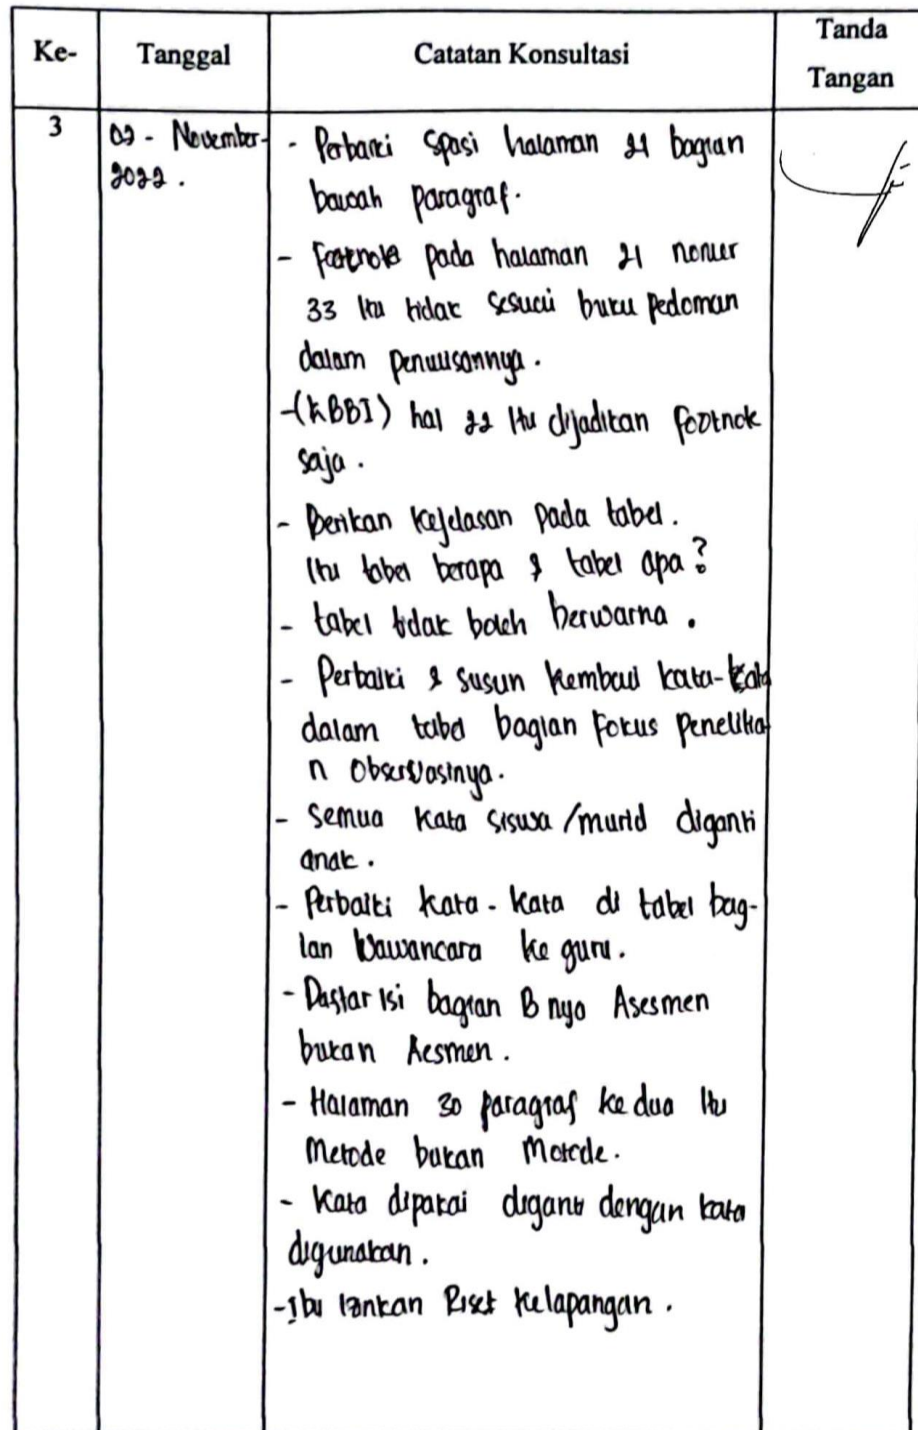 Ke-
Tanggal
Catatan Konsultasi
Tanda
Tangan
3
02 - November-
2022 .
- Perbaiki spasi halaman 21 bagian
bawah paragraf.
- Footnote pada halaman 21 nomer
33 itu tidak sesuai buku pedoman
dalam penulisannya.
- (KBBI) hal 22 itu dijadikan footnote
saja .
- Berikan kejelasan pada tabel.
Itu tabel berapa & tabel apa?
- tabel tidak boleh berwarna .
- Perbaiki & susun kembali kata-kata
dalam tabel bagian fokus penelitia
n observasinya.
- semua kata siswa/murid diganti
anak .
- Perbaiki kata - kata di tabel bag-
ian wawancara ke guru.
- Daftar isi bagian B nya Asesmen
bukan Aesmen .
- Halaman 30 paragraf ke dua itu
Metode bukan Motode.
- kata dipakai diganti dengan kata
digunakan .
- Ibu izinkan Riset kelapangan .